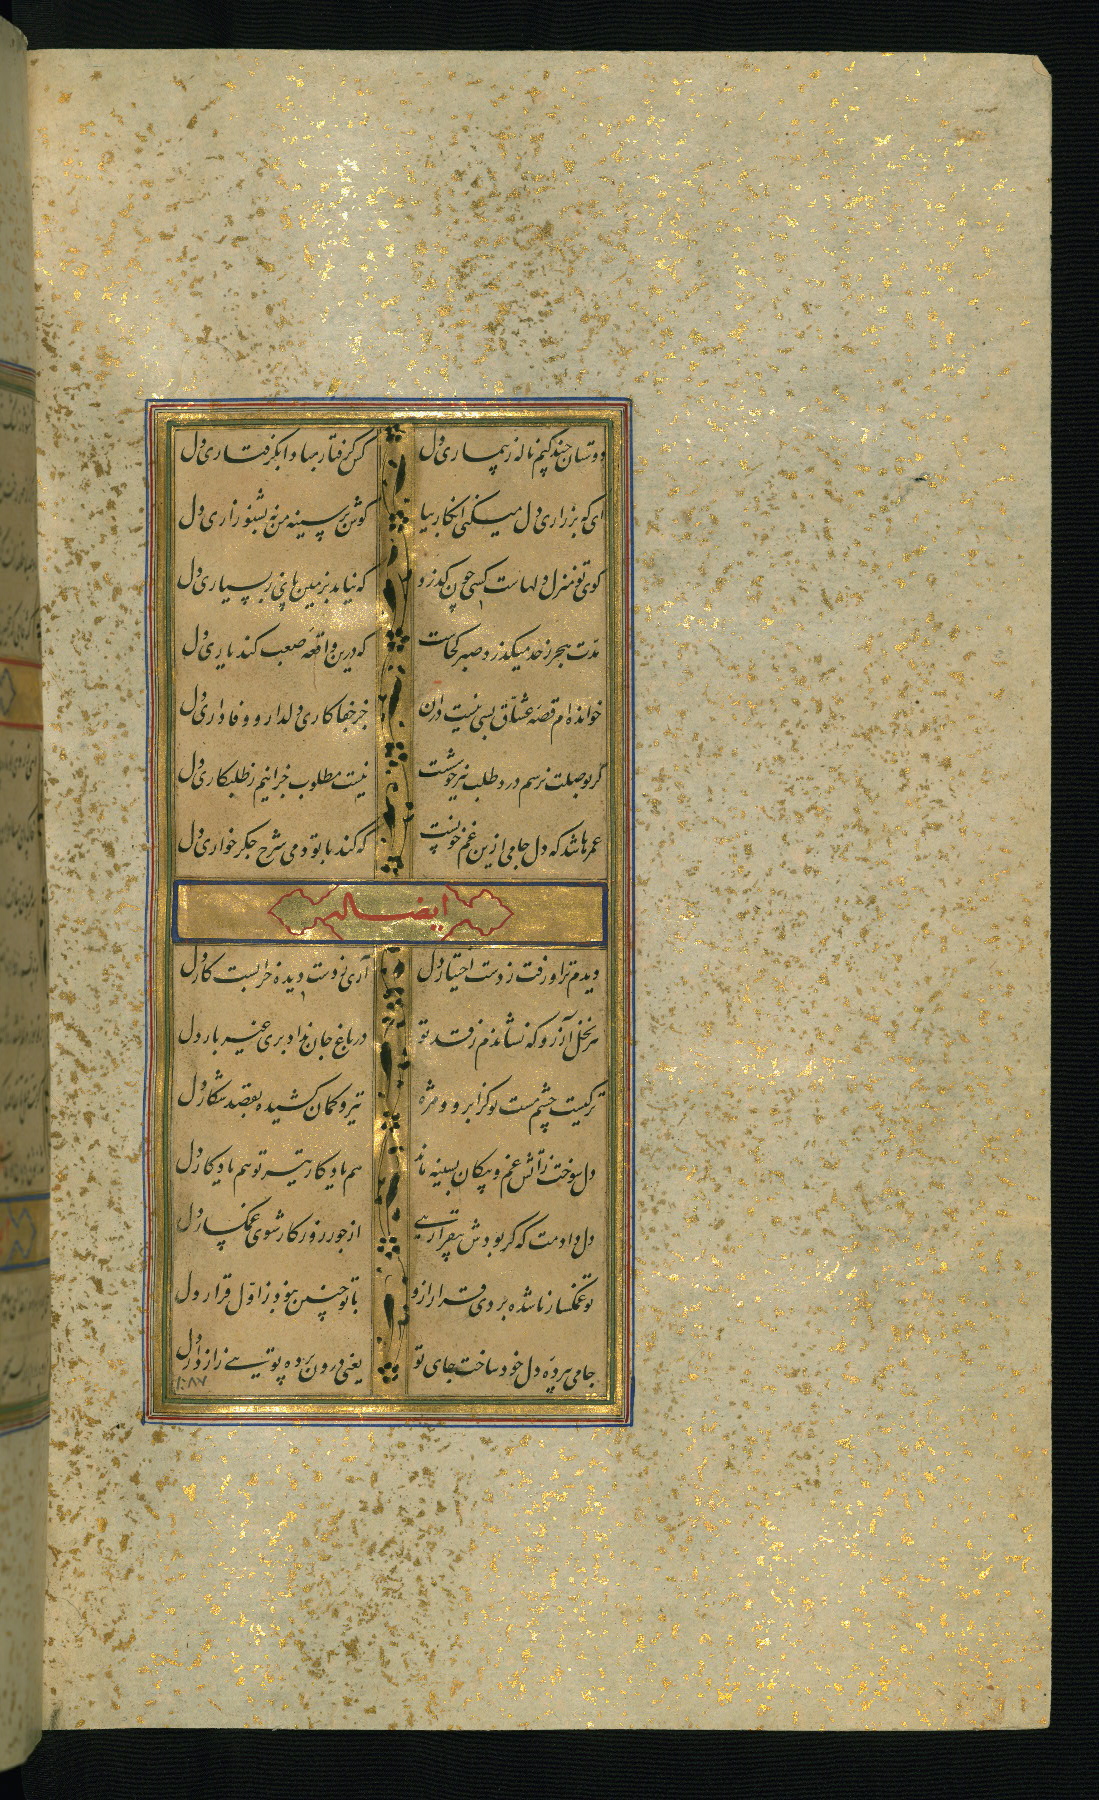 دوستان چند کنم ناله ز بیماری دل کس گرفتار مبادا بگرفتاری دل
ای که بر زاری دل میکنی انکار بیا گوش بر سینه من نه بشنو زاری دل
کوی تو منزل دلهاست کسی چون گذرد که نیاید بزمین پای ز بسیاری دل
مدت هجر ز حد میگذرد صبر کجاست که درین واقعه صعب کند یاری دل
خوانده ام قصه عشاق بسی نیست در آن جز جفاکاری دلدار و وفاداری دل
گر بوصلت نرسم درد طلب نیز خوشست نیست مطلوب جز اینم ز طلبکاری دل
عمرها شد که دل جامی ازین غم خونست که کند با تو دمی شرح جگرخواری دل
ایضا له
دیدم ترا و رفت ز دست اختیار دل آری ز دست دیده خرابست کار دل
هر نخل آرزو که نشاندم ز قد تو در باغ جان نداد بری غیر بار دل
ترکیست چشم مست تو کز ابرو و مژه تیر و کمان کشیده بقصد شکار دل
دل سوخت ز آتش غم و پیکان بسینه ماند هم یادگار تیر تو هم یادگار دل
دل دادمت که گر بودش بیقراریی از جور روزگار شوی غمگسار دل
تو غمگسار ناشده بردی قرار ازو با تو چنین نبود ز اول قرار دل
جامی بپرده دل خود ساخت جای تو یعنی درون پرده تویی رازدار دل